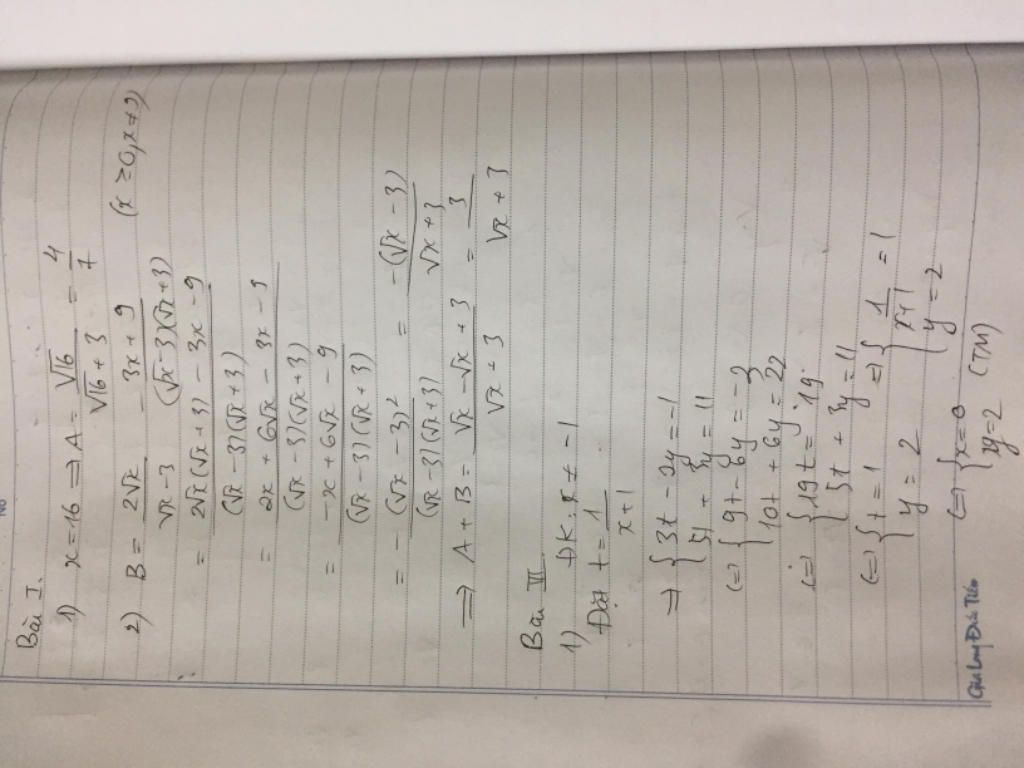 No
Bài I.
1) x = 16 => A = √16 / (√16 + 3) = 4/7
2) B = 2√x / (√x - 3) - (3x + 9) / ((√x - 3)(√x + 3)) (x ≥ 0, x ≠ 9)
= (2√x(√x + 3) - 3x - 9) / ((√x - 3)(√x + 3))
= (2x + 6√x - 3x - 9) / ((√x - 3)(√x + 3))
= (-x + 6√x - 9) / ((√x - 3)(√x + 3))
= - (√x - 3)² / ((√x - 3)(√x + 3)) = -(√x - 3) / (√x + 3)
=> A + B = (√x - √x + 3) / (√x + 3) = 3 / (√x + 3)
Bài III
1) ĐK: x ≠ -1
Đặt t = 1 / (x + 1)
=> { 3t - 2y = -1
5t + 3y = 11
(=) { 9t - 6y = -3
10t + 6y = 22
(=) { 19t = 19
5t + 3y = 11
(=) { t = 1
y = 2
=) { 1 / (x + 1) = 1
y = 2
(=) { x = 0
y = 2 (TM)